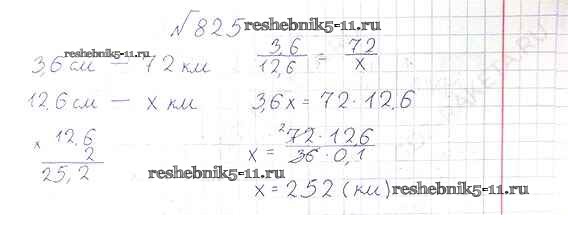 №825 reshebnik5-11.ru
reshebnik5-11.ru
3,6 см — 72 км
3,6/12,6 = 72/x
12,6 см — x км
3,6x = 72·12,6
× 12,6
2
25,2
x = ²72·12,6/36·0,1
reshebnik5-11.ru
x = 252 (км) reshebnik5-11.ru